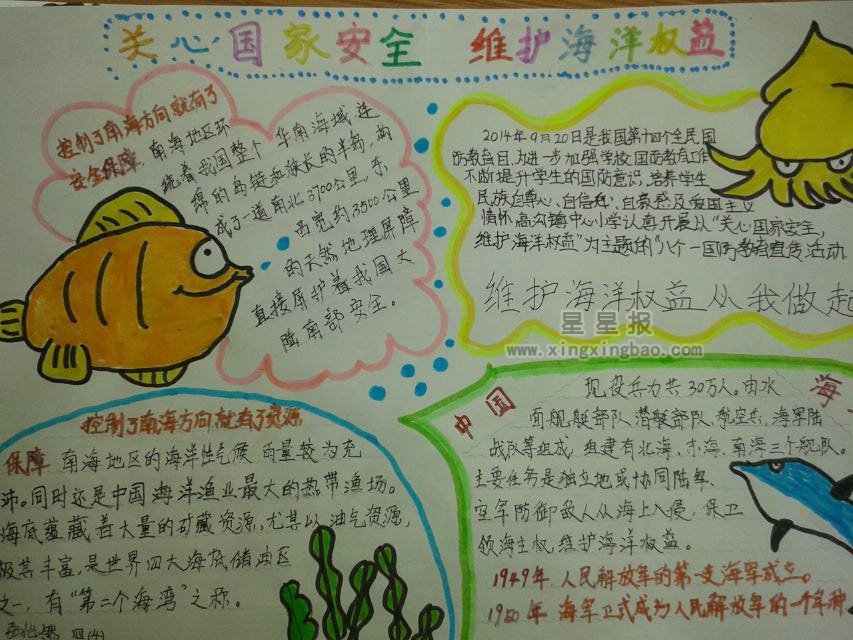 关心国家安全 维护海洋权益
控制了南海方向就有了
安全保障，南海地区环
绕着我国整个华南海域，连
绵的岛链和狭长的半岛，构
成了一道南北3700公里，东
西宽约3500公里
的天然地理屏障
直接屏护着我国大
陆南部安全。
2014年9月20日是我国第十四个全民国
防教育日，为进一步加强学校国防教育工作
不断提升学生的国防意识，培养学生
民族自尊心，自信和，自豪感及爱国主义
情怀，高沟镇中心小学认真开展从“关心国家安全，
维护海洋权益”为主题的“八个一国防教育宣传活动
维护海洋权益从我做起
星星报
www.xingxingbao.com
控制了南海方向就有了资源
保障 南海地区的海洋性气候 雨量较为充
沛。同时还是中国海洋渔业最大的热带渔场。
海底蕴藏着大量的矿藏资源，尤其以油气资源，
极其丰富，是世界四大海底储油区
之一，有“第二个海湾”之称。
四(4)
中国 海
现役兵力共30万人。由水
面舰艇部队、潜艇部队、航空兵、海军陆
战队等组成，组建有北海、东海、南海三个舰队。
主要任务是独立地或协同陆军、
空军防御敌人从海上入侵，保卫
领海主权，维护海洋权益。
1949年，人民解放军的第一支海军成立。
1950年 海军正式成为人民解放军的一个军种